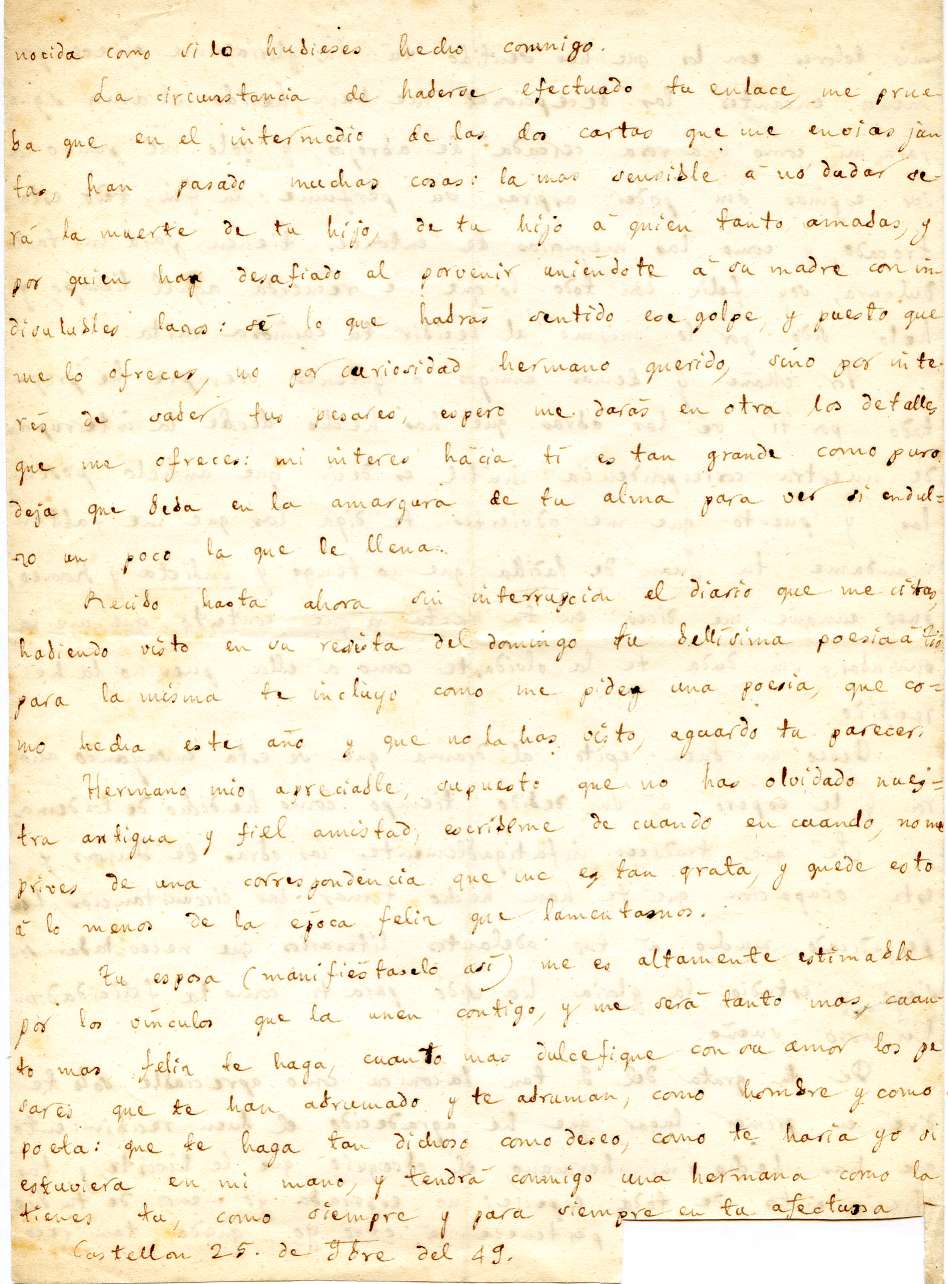 nocida como si lo hubieses hecho conmigo.
La circunstancia de haberse efectuado tu enlace, me prue-
ba que en el intermedio de las dos cartas que me envias jun
tas, han pasado muchas cosas: la mas sensible á no dudar se-
rá la muerte de tu hijo, de tu hijo á quien tanto amabas, y
por quien has desafiado al porvenir uniéndote á su madre con in
disolubles lazos: sé lo que habrás sentido ese golpe, y puesto que
me lo ofreces, no por curiosidad hermano querido, sino por inte-
rés de saber tus pesares, espero me darás en otra los detalles
que me ofreces: mi interes hácia tí es tan grande como puro.
deja que beba en la amargura de tu alma para ver si endul=
zo un poco la que le llena.
Recibo hasta ahora sin interrupcion el diario que me citas,
habiendo visto en su revista del domingo tu bellísima poesia á
para la misma te incluyo como me pides una poesia, que co=
mo hecha este año y que no la has visto, aguardo tu parecer.
Hermano mio apreciable, supuesto que no has olvidado nues=
tra antigua y fiel amistad, escribeme de cuando en cuando, no me
prives de una correspondencia que me es tan grata, y quede esto
á lo menos de la época feliz que lamentamos.
Tu esposa (manifiéstaselo así) me es altamente estimable
por los vínculos que la unen contigo, y me será tanto mas, cuan
to mas feliz te haga, cuanto mas dulcifique con su amor los pe
sares que te han abrumado y te abruman, como hombre y como
poeta: que te haga tan dichoso como deseo, como te haria yo si
estuviera en mi mano, y tendrá conmigo una hermana como la
tienes tu, como siempre y para siempre en tu afectuosa
Castellon 25. de 9bre del 49.